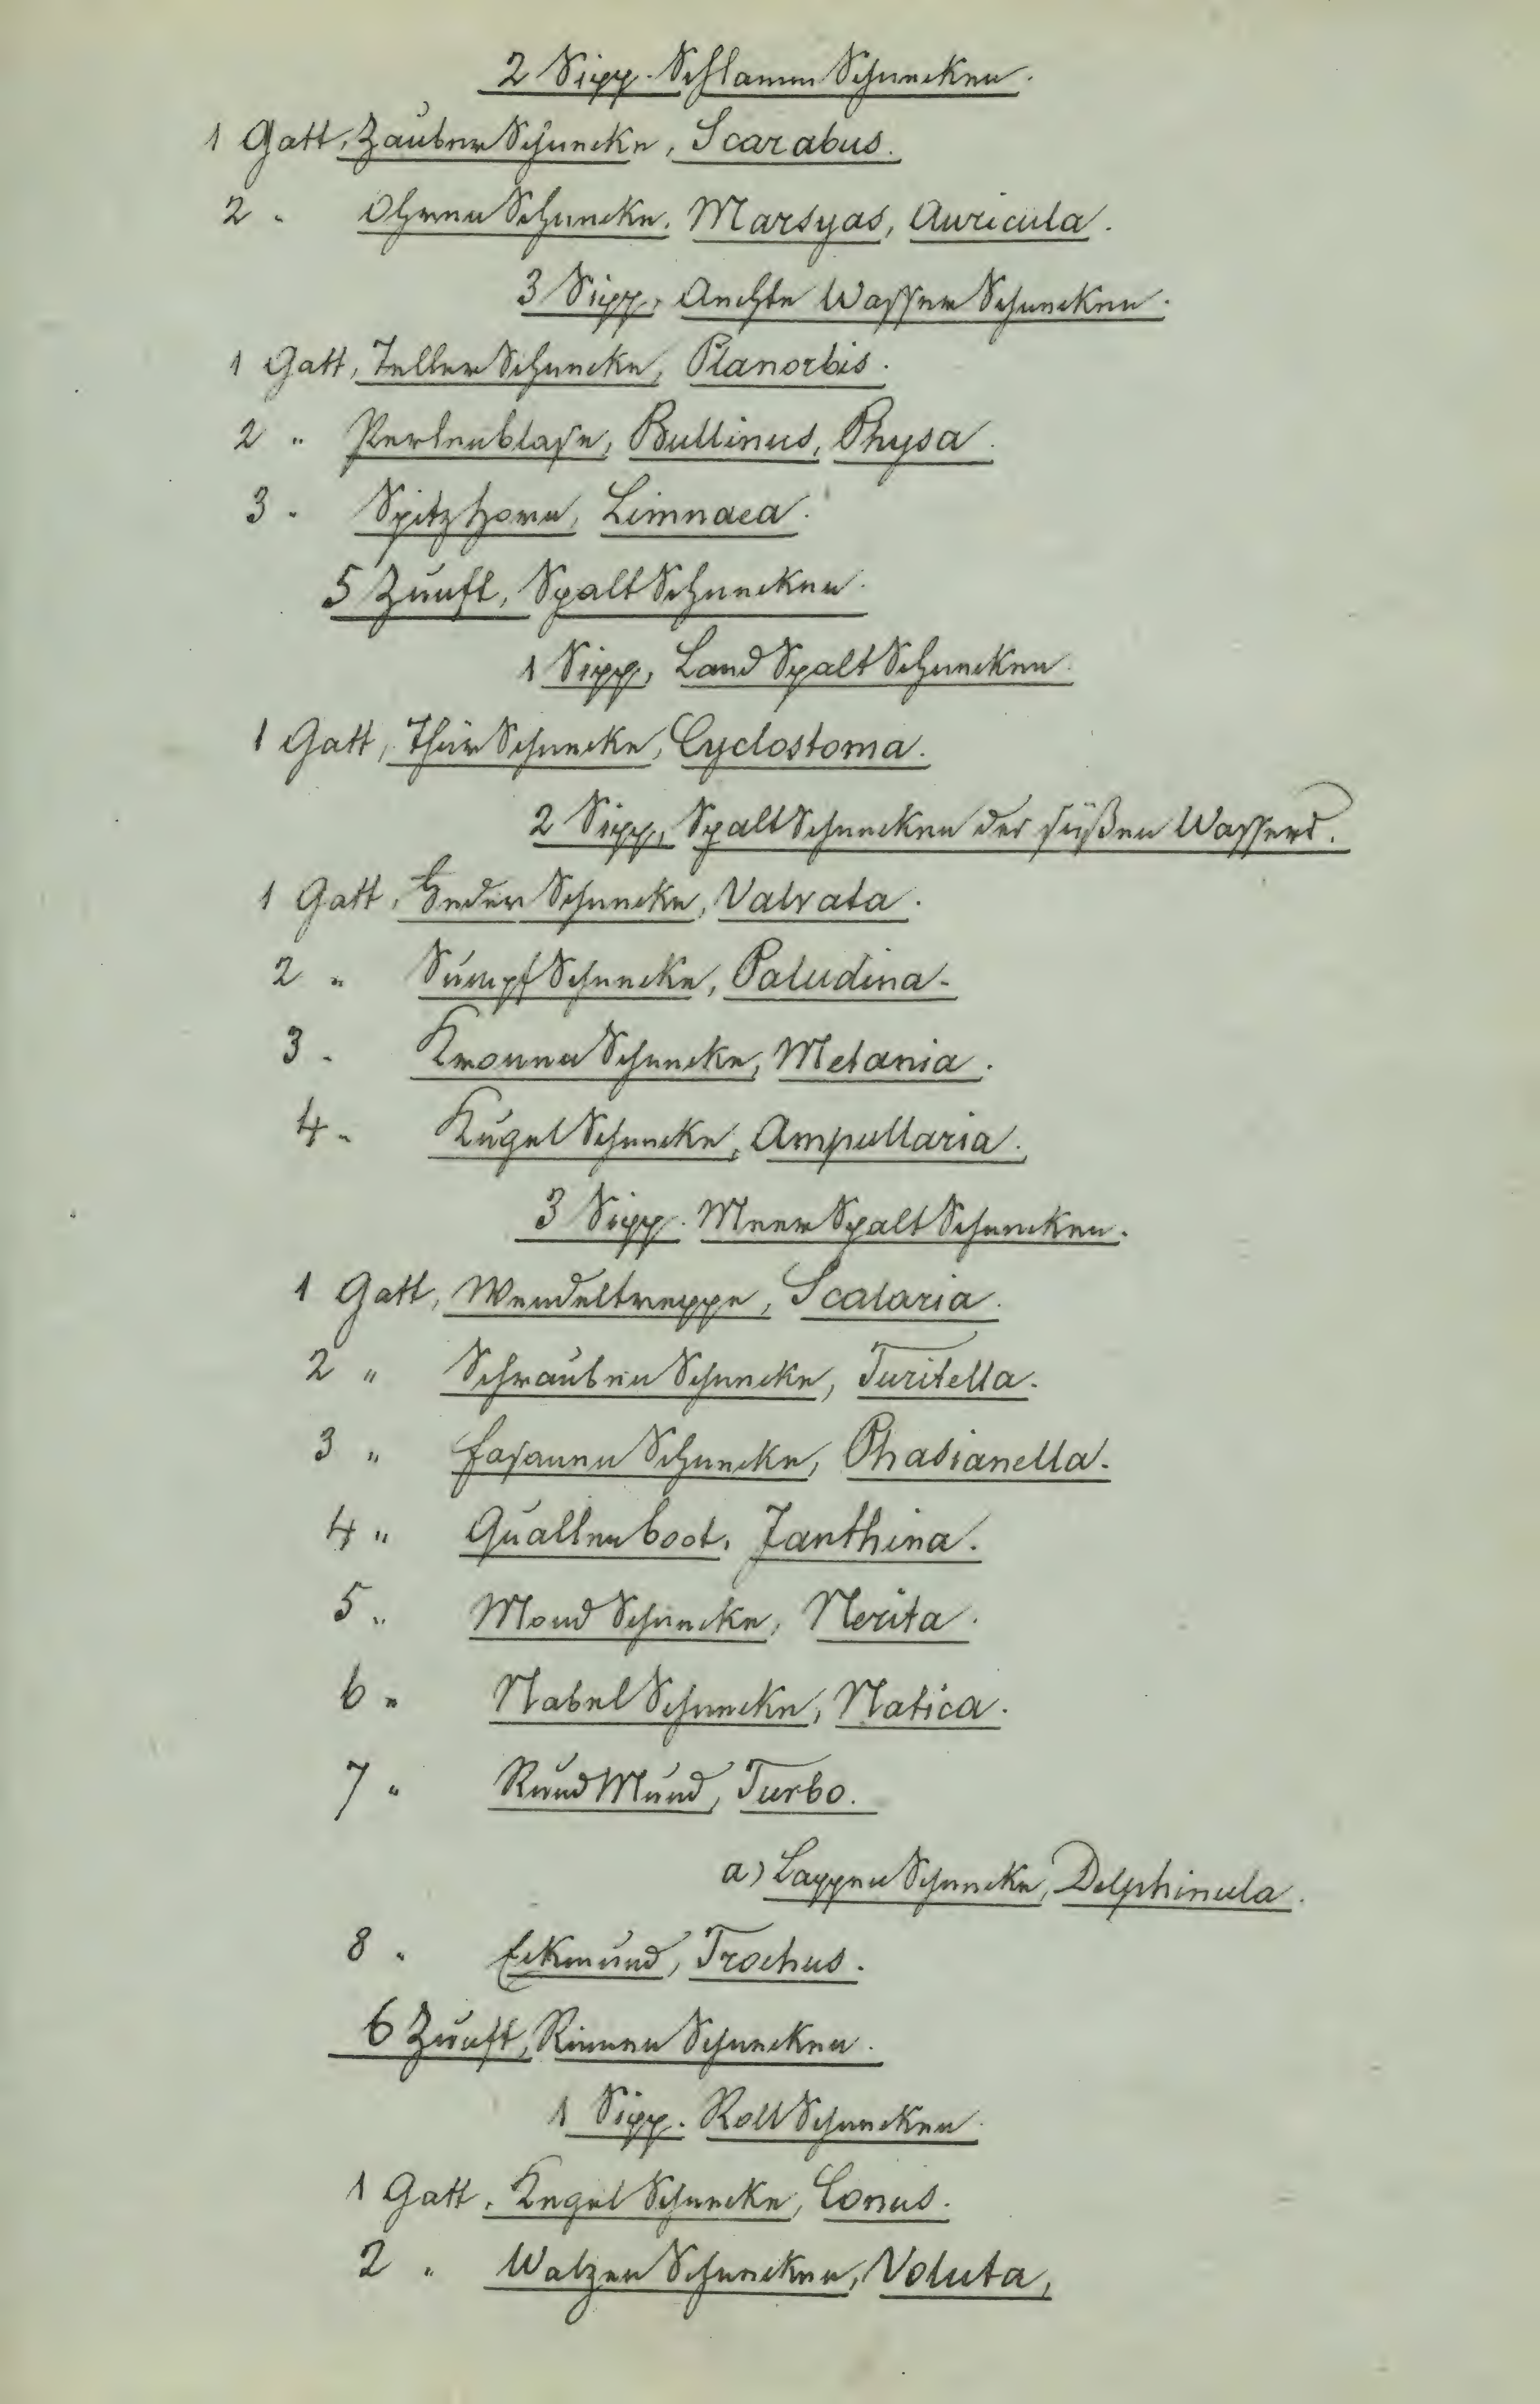 2 Sipp. SchlammSchnecken.
1 Gatt, ZauberSchnecke, Scarabus.
2 " OhrenSchnecke, Marsyas, Auricula.
3 Sipp, Aechte WasserSchnecken.
1 Gatt, TellerSchnecke, Planorbis.
2 " Perlenblase, Bullinus, Physa.
3 " Spitzhorn, Limnaea.
5 Zunft, SpaltSchnecken.
1 Sipp, LandSpaltSchnecken.
1 Gatt, ThürSchnecke, Cyclostoma.
2 Sipp, SpaltSchnecken des süßen Wassers.
1 Gatt, FederSchnecke, Valvata.
2 " SumpfSchnecke, Paludina.
3 " KronenSchnecke, Melania.
4 " KugelSchnecke, Ampullaria.
3 Sipp. MeerSpaltSchnecken.
1 Gatt, Wendeltreppe, Scalaria.
2 " SchraubenSchnecke, Turitella.
3 " FasanenSchnecke, Phasianella.
4 " Quallenboot, Janthina.
5 " MondSchnecke, Nerita.
6 " NabelSchnecke, Natica.
7 " RundMund, Turbo.
a) LappenSchnecke, Delphinula.
8 " Eckmund, Trochus.
6 Zunft, RinnenSchnecken.
1 Sipp. RollSchnecken.
1 Gatt. KegelSchnecke, Conus.
2 " WalzenSchnecken, Voluta,